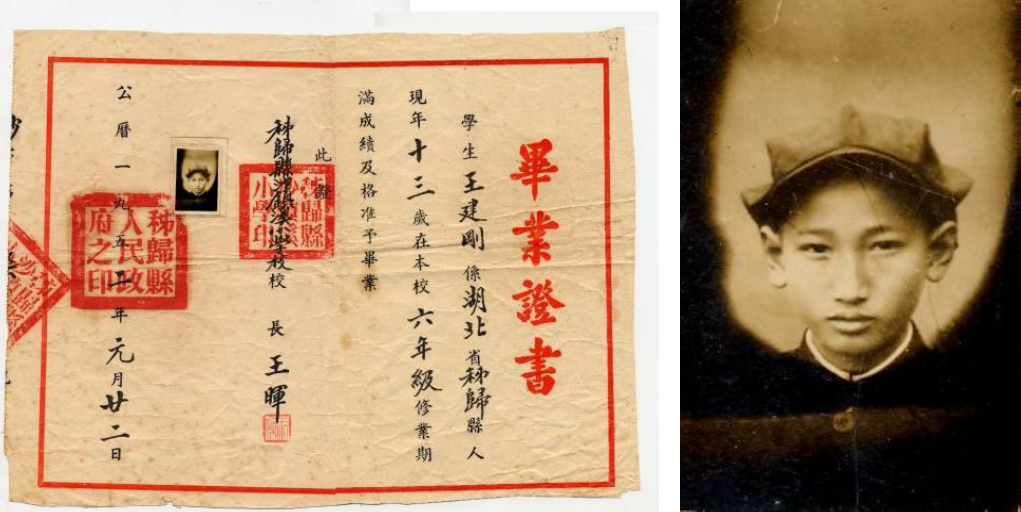 畢業證書
學生王建剛係湖北省秭歸縣人
現年十三歲在本校六年級修業期
滿成績及格准予畢業
此證
秭歸縣沙鎮溪小學校校長王暉
公曆一九五年元月廿二日
秭歸縣
沙鎮溪
小學印
秭歸縣
人民政
府之印